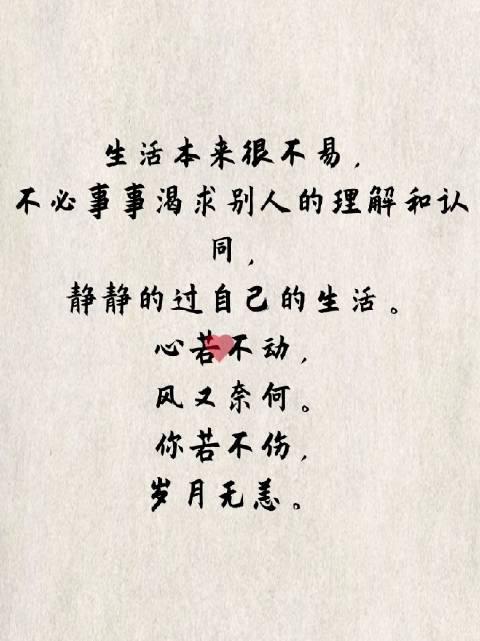 生活本来很不易，
不必事事渴求别人的理解和认
同，
静静的过自己的生活。
心若不动，
风又奈何。
你若不伤，
岁月无恙。